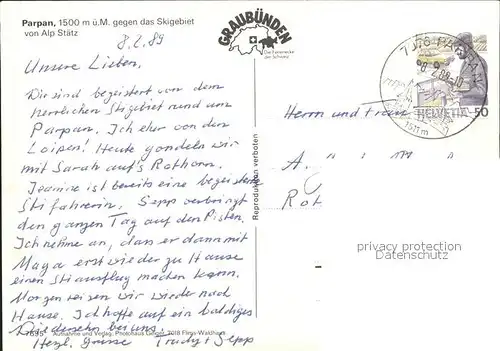 Parpan, 1500 m ü.M. gegen das Skigebiet
von Alp Stätz
8.2.89
Unsere Lieben.
Wir sind begeistert von dem
herrlichen Skigebiet rund um
Parpan. Ich eher von den
Loipen! Heute gondeln wir
mit Sarah auf's Rothorn.
Jeanine ist bereits eine begeisterte
Skifahrerin. Sepp verbringt
den ganzen Tag auf den Pisten.
Ich nehme an, dass er dann mit
Maya erst wieder zu Hause
einen Skiausflug machen kann.
Morgen reisen wir wieder nach
Hause. Ich hoffe auf ein baldiges
Wiedersehn bei uns.
7695 Aufnahme und Verlag: Photohaus Geiger, 7018 Flims-Waldhaus
Herzl. Grüsse Trudy + Sepp
GRAUBÜNDEN
Die Ferienecke
der Schweiz
Reproduktion verboten
7076 PARPAN
-8.-2.89-10
1511 m
HELVETIA 50
Herrn und Frau
A.
Rot
privacy protection
Datenschutz